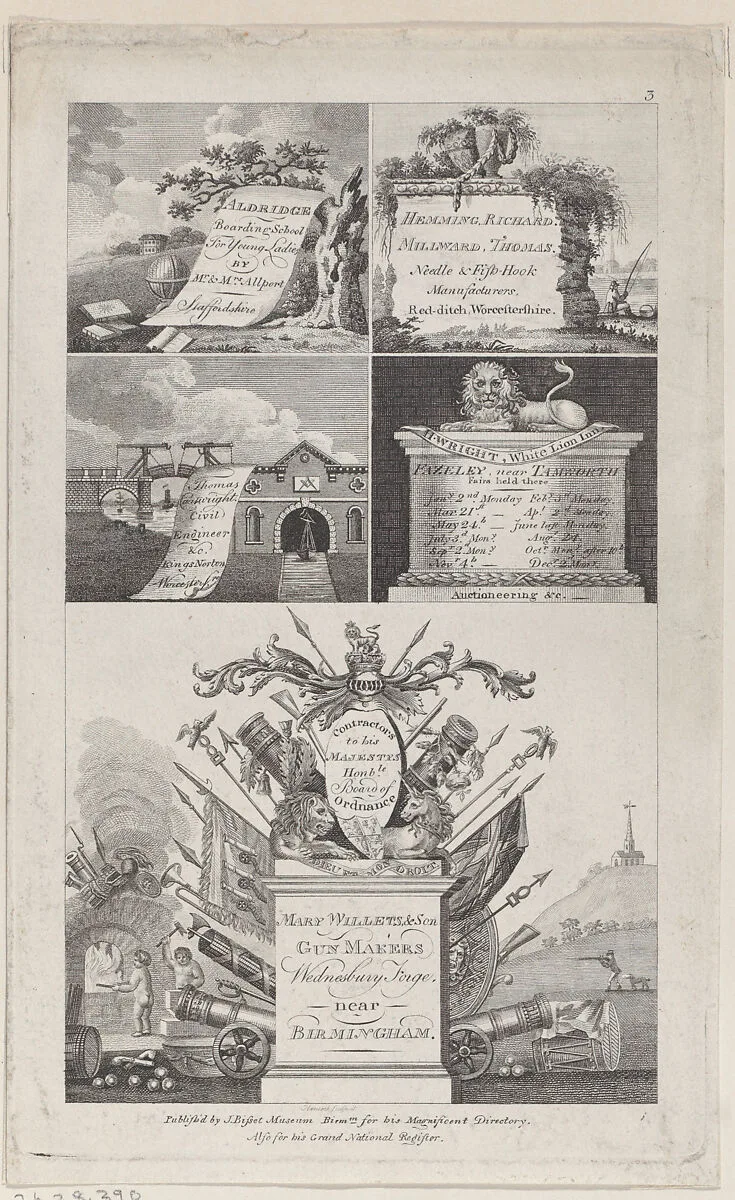 3
ALDRIDGE
Boarding School
For Young Ladies
BY
Mr. & Mrs. Allport
Staffordshire
HEMMING, RICHARD.
MILLWARD, THOMAS.
Needle & Fiſh-Hook
Manufacturers,
Red-ditch, Worcesterſhire.
Thomas
Cartwright,
Civil
Engineer
&c.
Kings Norton
Worcesterſh
H. WRIGHT, White Lion Inn
FAZELEY, near TAMWORTH
Fairs held there
Jany. 2nd. Monday Feby. 3d. Monday
Mar 21st. — Apl. 2d. Monday
May 24th. — June laſt Monday
July 3d. Mony. Aug. 24.
Sepr. 2. Mony. Octr. Mony. after 10th
Novr. 4th. — Decr. 2. Mony.
Auctioneering &c. —
Contractors
to his
MAJESTYS
Honble
Board of
Ordnance
DIEU ET MON DROIT
MARY WILLETS, & Son
GUN MAKERS
Wednesbury Forge.
— near —
BIRMINGHAM.
Publiſh'd by J. Biſſet Museum Birmm. for his Magnificent Directory.
Alſo for his Grand National Regiſter.
i